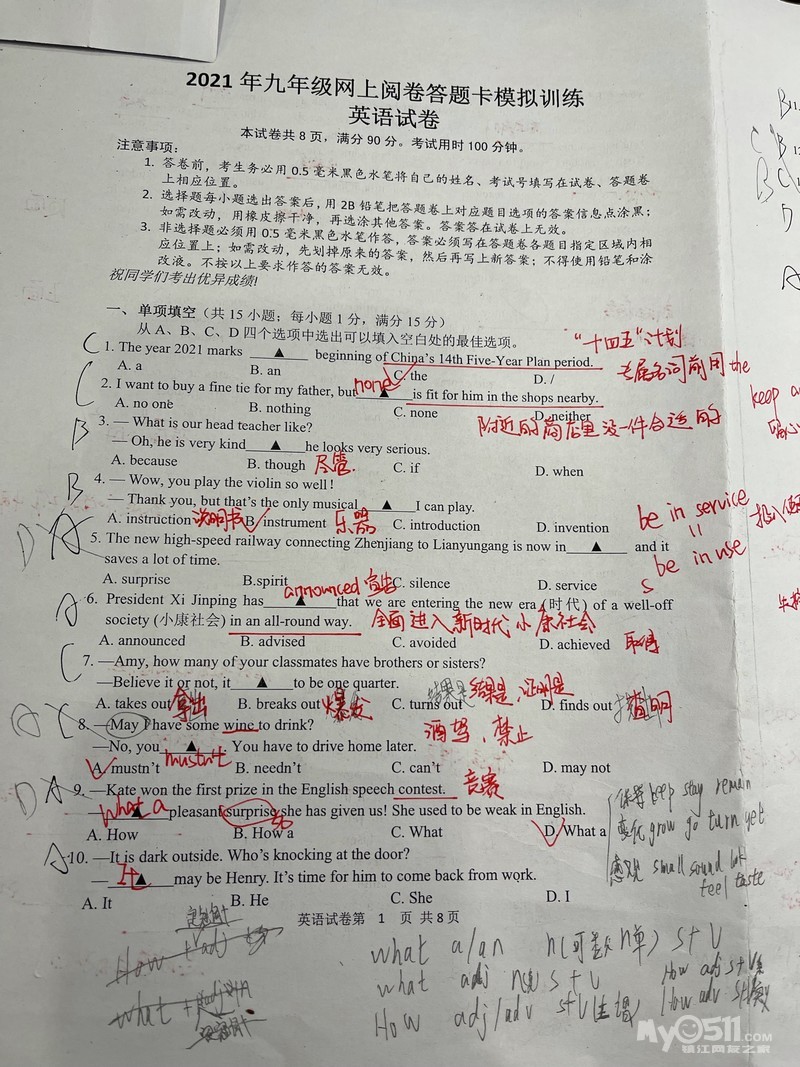 2021 年九年级网上阅卷答题卡模拟训练
英语试卷
本试卷共 8 页，满分 90 分。考试用时 100 分钟。
注意事项：
1. 答卷前，考生务必用 0.5 毫米黑色水笔将自己的姓名、考试号填写在试卷、答题卷
上相应位置。
2. 选择题每小题选出答案后，用 2B 铅笔把答题卷上对应题目选项的答案信息点涂黑；
如需改动，用橡皮擦干净，再选涂其他答案。答案答在试卷上无效。
3. 非选择题必须用 0.5 毫米黑色水笔作答，答案必须写在答题卷各题目指定区域内相
应位置上；如需改动，先划掉原来的答案，然后再写上新答案；不得使用铅笔和涂
改液。不按以上要求作答的答案无效。
祝同学们考出优异成绩！
一、单项填空（共 15 小题；每小题 1 分，满分 15 分）
从 A、B、C、D 四个选项中选出可以填入空白处的最佳选项。
"十四五"计划
C 1. The year 2021 marks ▲ beginning of China's 14th Five-Year Plan period.
A. a B. an C. the D. /
专属名词前用the
none
C 2. I want to buy a fine tie for my father, but ▲ is fit for him in the shops nearby.
A. no one B. nothing C. none D. neither
附近的商店里没一件合适的
B 3. — What is our head teacher like?
— Oh, he is very kind ▲ he looks very serious.
A. because B. though 尽管 C. if D. when
B 4. — Wow, you play the violin so well !
— Thank you, but that's the only musical ▲ I can play.
A. instruction 说明书 B. instrument 乐器 C. introduction D. invention
be in service
be in use
D A 5. The new high-speed railway connecting Zhenjiang to Lianyungang is now in ▲ and it
saves a lot of time.
A. surprise B.spirit C. silence D. service
announced 宣告
A 6. President Xi Jinping has ▲ that we are entering the new era (时代) of a well-off
society (小康社会) in an all-round way. 全面进入新时代小康社会
A. announced B. advised C. avoided D. achieved 取得
C 7. —Amy, how many of your classmates have brothers or sisters?
—Believe it or not, it ▲ to be one quarter.
A. takes out 拿出 B. breaks out 爆发 C. turns out 结果是, 证明是 D. finds out 查明
8. —May I have some wine to drink? 酒驾、禁止
—No, you ▲ . You have to drive home later.
mustn't
A. mustn't B. needn't C. can't D. may not
D A 9. —Kate won the first prize in the English speech contest. 竞赛
What a
— ▲ pleasant surprise she has given us! She used to be weak in English.
A. How B. How a C. What D. What a
保持 keep stay remain
变化 grow go turn get
A 10. —It is dark outside. Who's knocking at the door?
— It ▲ may be Henry. It's time for him to come back from work.
感观 smell sound look
feel taste
A. It B. He C. She D. I
英语试卷第 1 页 共 8 页
what a/an n(可数n单) S+V
what adj n S+V
How adj/adv S+V
My0511.com
镇江网友之家